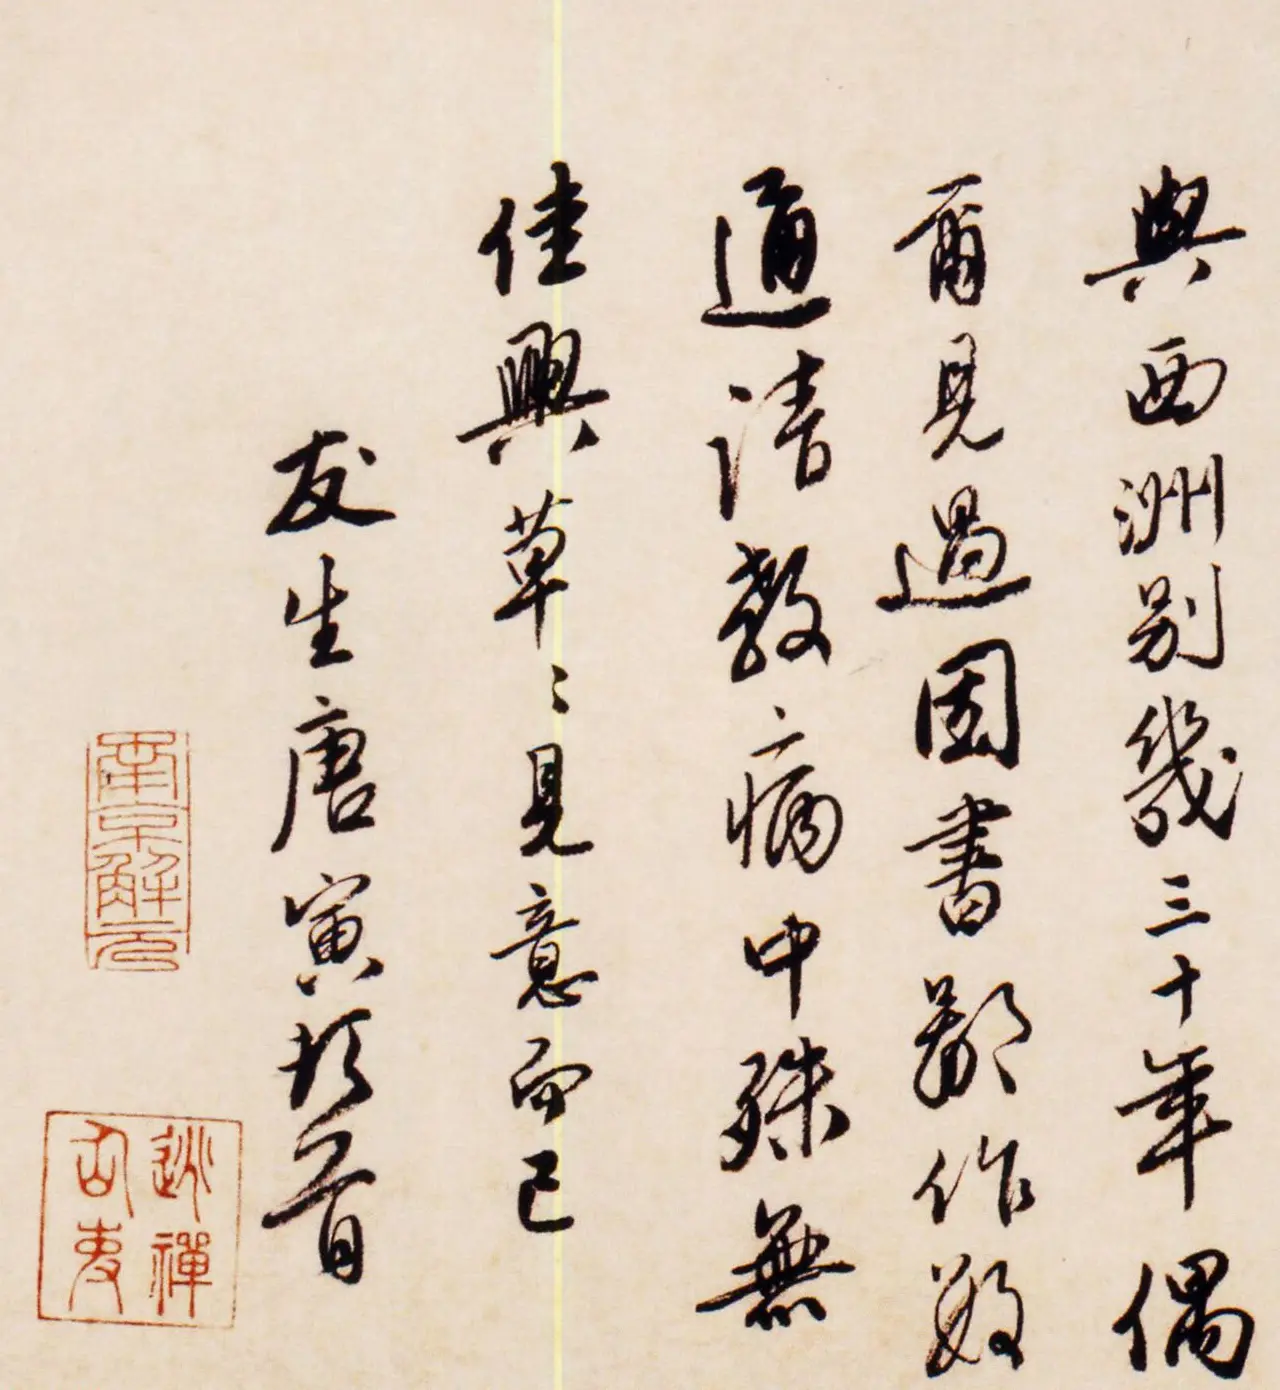 與西洲別幾三十年偶
爾見過因書鄙作數
通請教病中殊無
佳興草〻見意而已
友生唐寅頓首
南京解元
逃禪仙吏